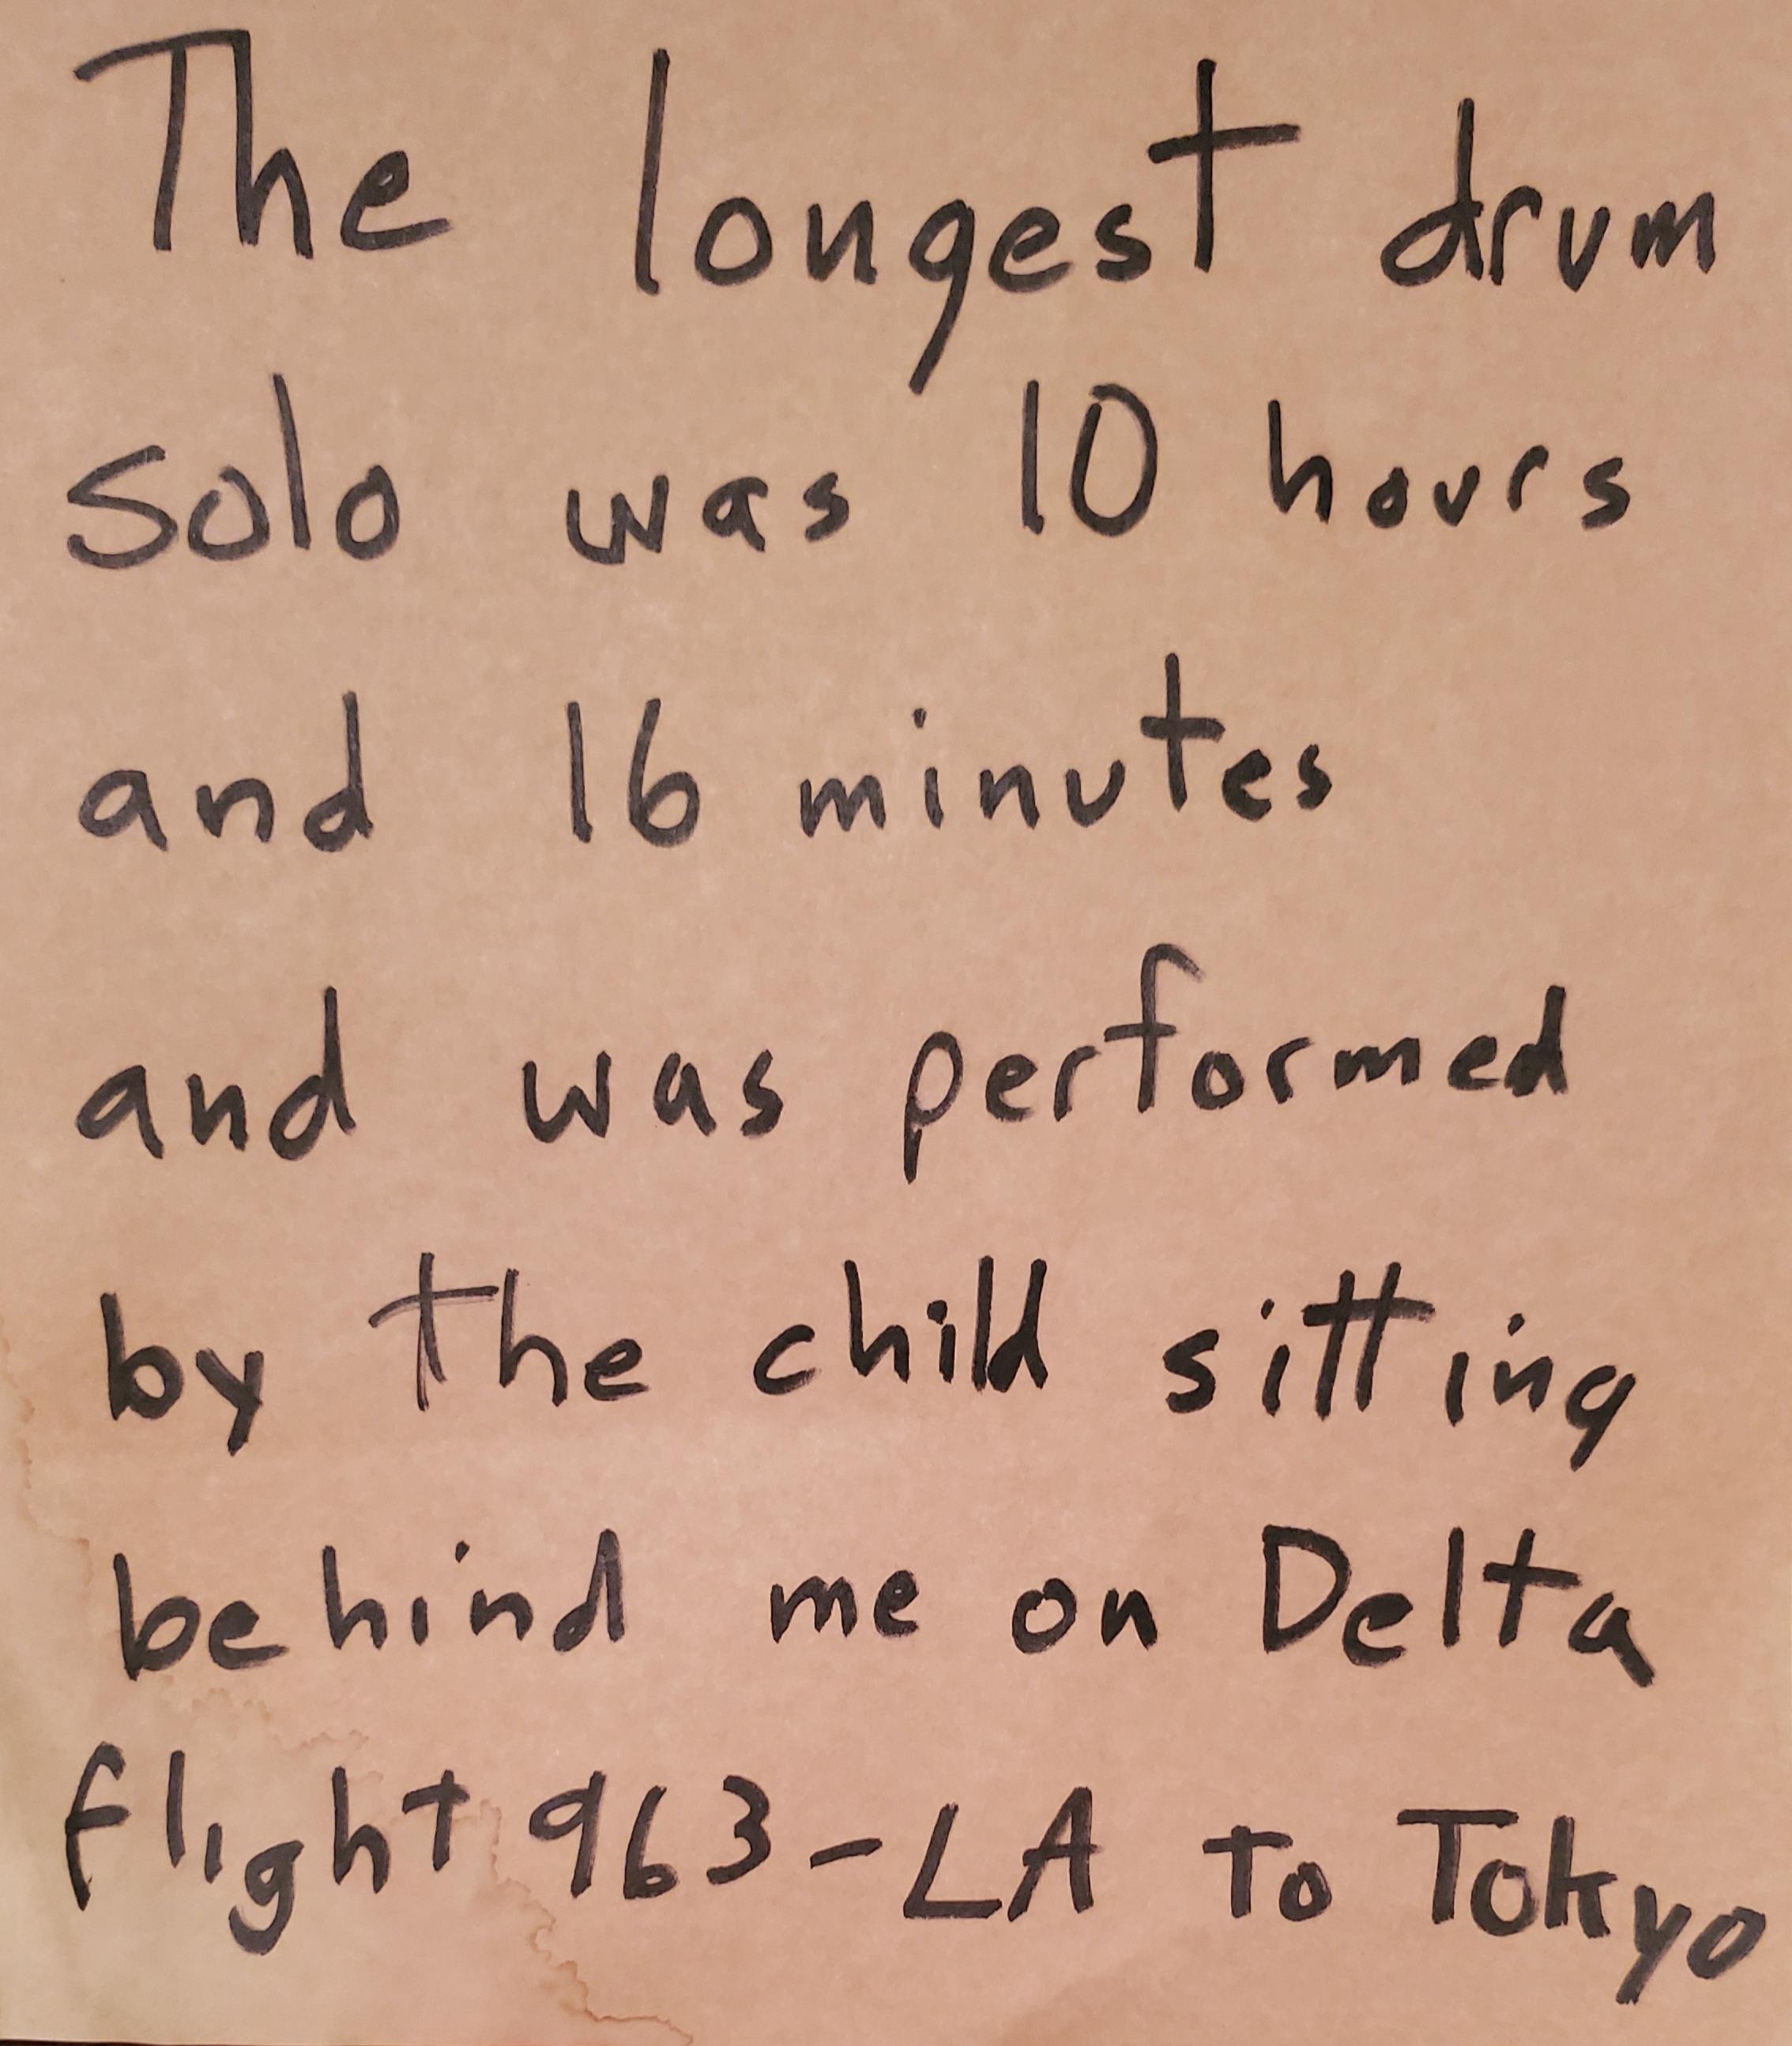 The longest drum
solo was 10 hours
and 16 minutes
and was performed
by the child sitting
behind me on Delta
flight 963-LA to Tokyo